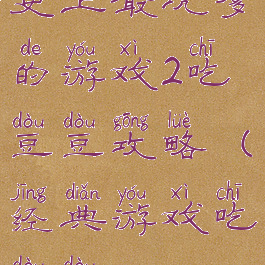 de yóu xì chī
的游戏2吃
dòu dòu gōng lüè
豆豆攻略（
jīng diǎn yóu xì chī
经典游戏吃
dòu dòu